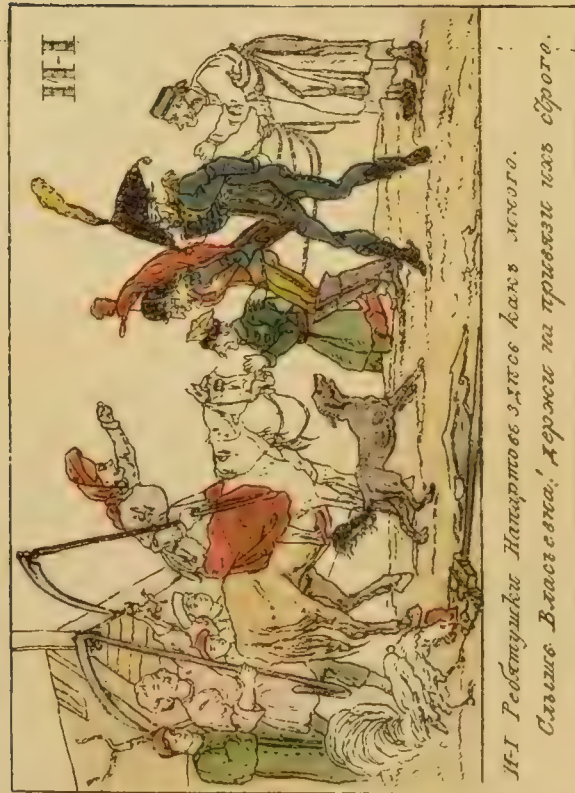 И-I Ребятушки Напартовъ здѣсь какъ много.
Слышь Власьевна! держи на привязи ихъ строго.